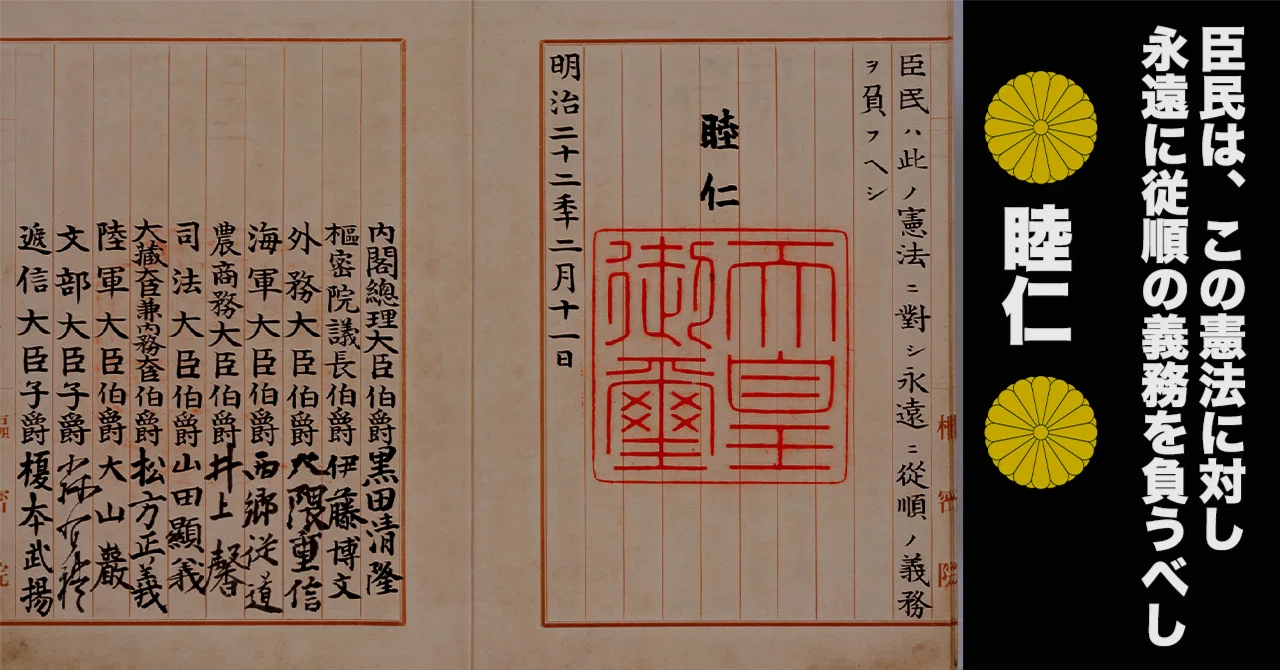 臣民は、この憲法に対し
永遠に従順の義務を負うべし
睦仁
臣民ハ此ノ憲法ニ對シ永遠ニ從順ノ義務
ヲ負フヘシ
睦仁
天皇
御璽
明治二十二年二月十一日
內閣總理大臣伯爵黒田清隆
樞密院議長伯爵伊藤博文
外務大臣伯爵大隈重信
海軍大臣伯爵西郷従道
農商務大臣伯爵井上馨
司法大臣伯爵山田顯義
大藏大臣兼內務大臣伯爵松方正義
陸軍大臣伯爵大山巖
文部大臣子爵森有禮
遞信大臣子爵榎本武揚